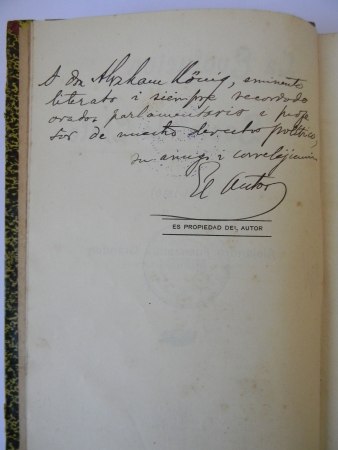 A don Abraham König, eminente
literato i siempre recordado
orador parlamentario e profe
sor de nuestro derecho político,
su amigo i correlijionario
El Autor
ES PROPIEDAD DEL AUTOR